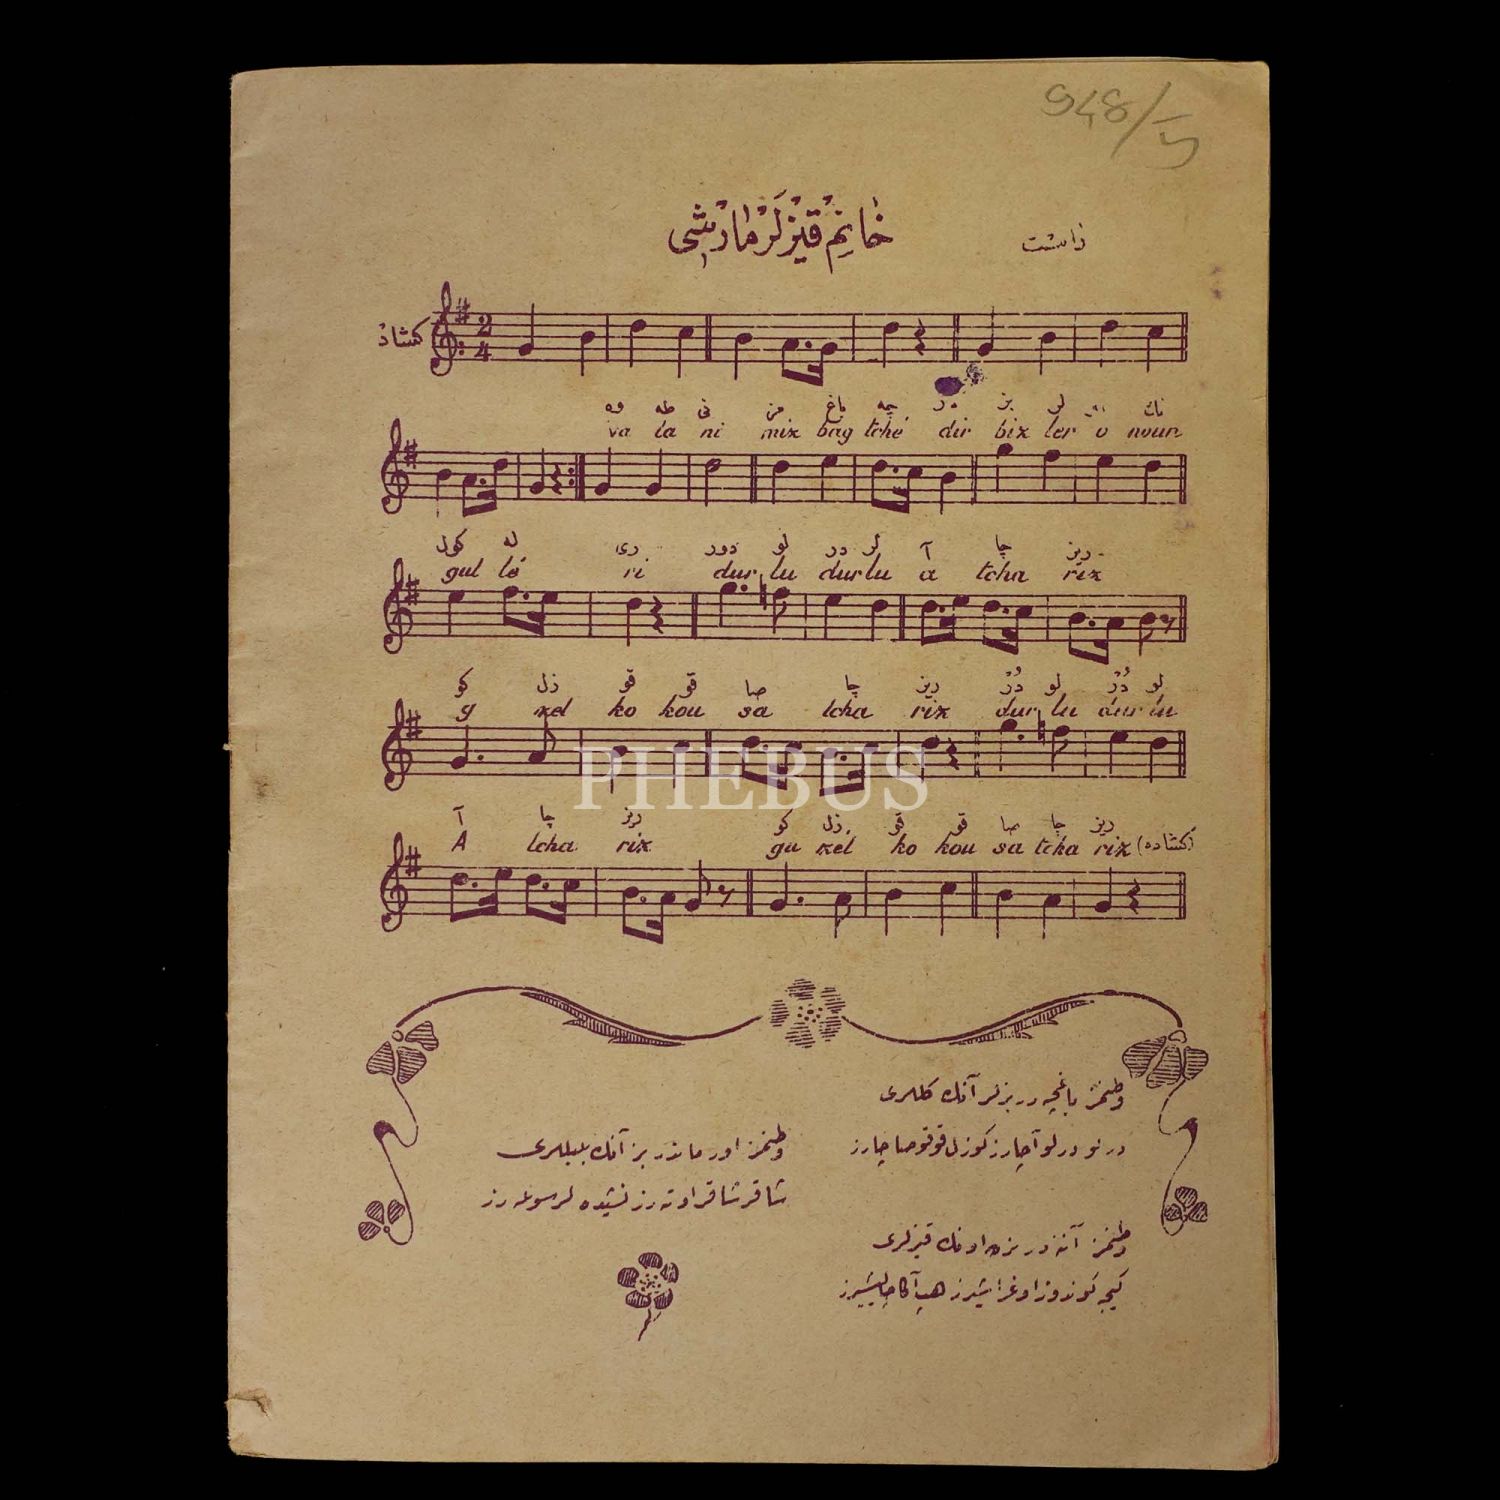 948/5
خانم قیزلر مارشی
راست
کشاد
2
4
وه طه نی مز باغ چه در بز لر نك
va ta ni mix bag tché dir bix ler o noun
كول له ری دور لو در لر آ چا ریز
gul lé ri dur lu dur lu a tcha rix
كو زل قو قو صا چا ریز دُر لو دُر لو
g xel ko kou sa tcha rix dur lu dur lu
آ چا ریز كو زل قو قو صا چا ریز (كشاده)
A tcha rix gu xel ko kou sa tcha rix
PHEBUS
وطنمز باغچه در بزلر آنك كللری
در لو در لو آچارز كوزل قوقو صاچارز
وطنمز اورماندر بز آنك بلبللری
شاقر شاقر اوته رز نشیده لر سویله رز
وطنمز آننه در بزده اونك قیزلری
كیجه كوندوز اوغراشیرز هپ آكا چالیشیرز